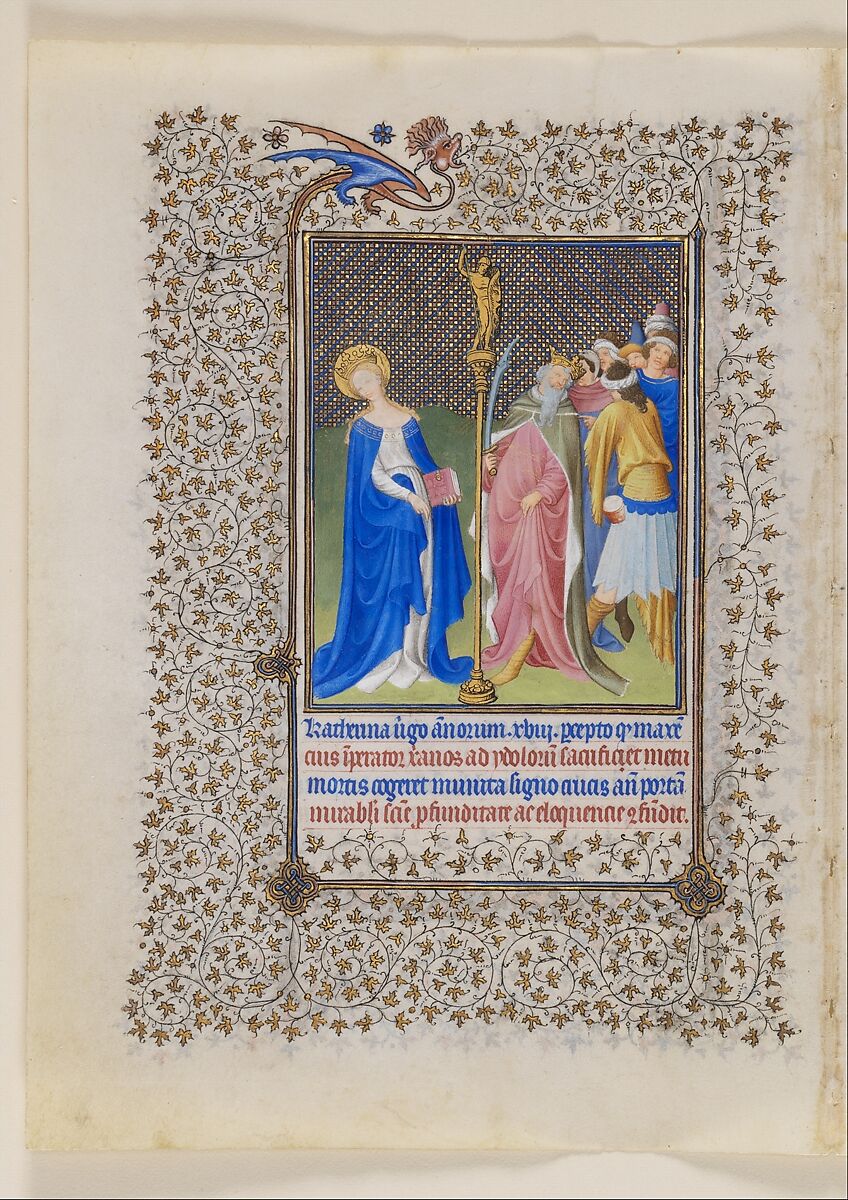 Katherina v̄go ānorum .xviij. p̄cepto ꝙ maxē
cius īperator xānos ad ydolorū sacrificiet metu
mortis cogeret munita signo crucis an̄ portā
mirabli sciē ꝓfunditate ac eloquencie ꝯfūdit.